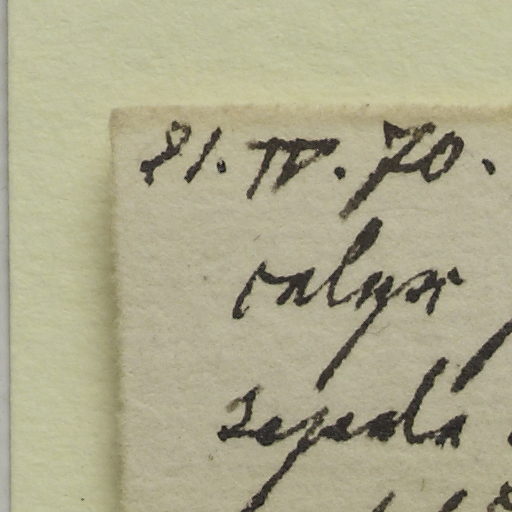 21.IV.70.
calyx
sepala